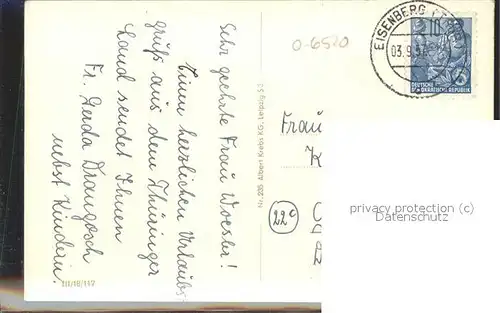 Sehr geehrte Frau Woesler!
Einen herzlichen Urlaubs-
gruß aus dem Thüringer
Land sendet Ihnen
Fr. Gerda
nebst Kindern.
III/18/112
Nr. 235 Albert Krebs KG., Leipzig S 3
0-6520
EISENBERG
03.9.57
10
DEUTSCHE
DEMOKRATISCHE REPUBLIK
Frau
K
22c
privacy protection (c)
Datenschutz